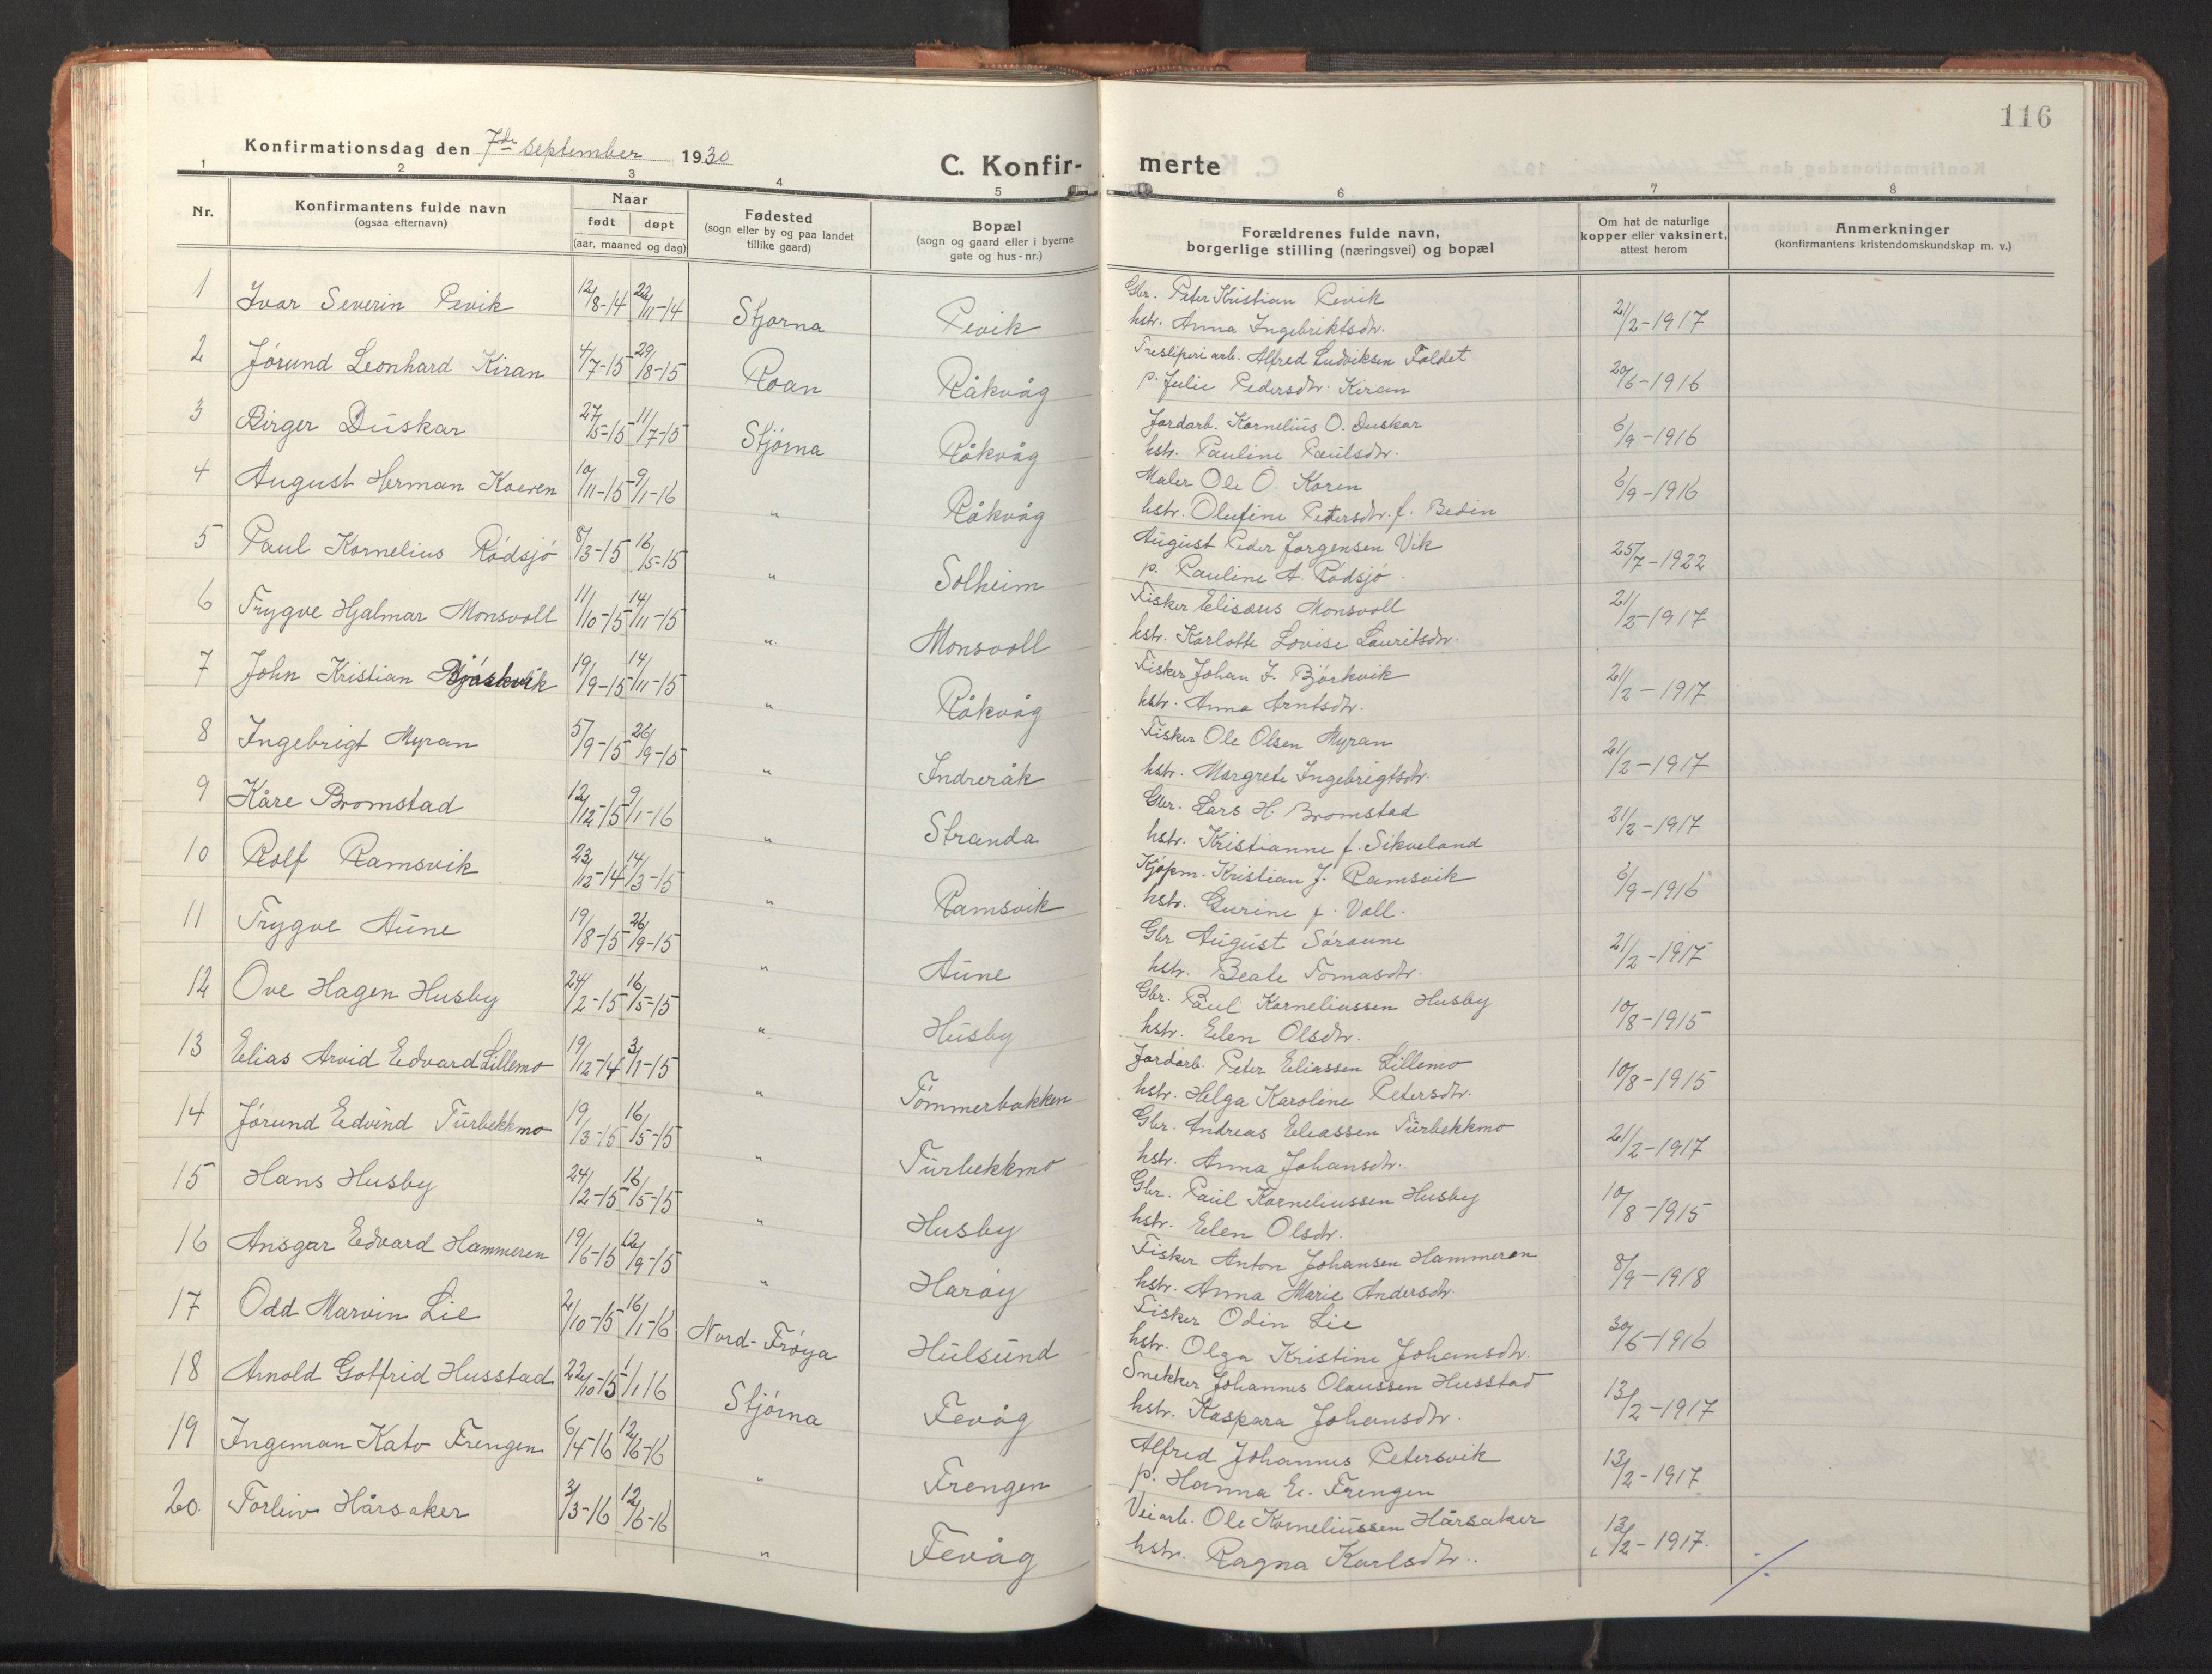 116
Konfirmationsdag den 7de September 1930
C. Konfir- merte
1 2 3 4 5 6 7 8
Nr. Konfirmantens fulde navn (ogsaa efternavn) Naar født døpt (aar, maaned og dag) Fødested (sogn eller by og paa landet tillike gaard) Bopæl (sogn og gaard eller i byerne gate og hus-nr.) Forældrenes fulde navn, borgerlige stilling (næringsvei) og bopæl Om hat de naturlige kopper eller vaksinert, attest herom Anmerkninger (konfirmantens kristendomskundskap m. v.)
1 Ivar Severin Revik 12/8-14 22/11-14 Stjørna Revik Gbr. Peter Kristian Revik
hstr. Anna Ingebriktsdtr. 21/2-1917
2 Jørund Leonhard Kiran 4/7-15 29/8-15 Roan Råkvåg Tresliperi arb. Alfred Ludviksen Foldet
p. Julie Pedersdtr. Kiran 20/6-1916
3 Birger Duskar 27/5-15 11/7-15 Stjørna Råkvåg Jordarb. Kornelius O. Duskar
hstr. Pauline Paulsdtr. 6/9-1916
4 August Herman Koeren 10/11-15 9/1-16 " Råkvåg Maler Ole O. Koren
hstr. Olufine Petersdtr. f. Bedin 6/9-1916
5 Paul Kornelius Rødsjø 8/3-15 16/5-15 " Solheim August Peder Jørgensen Vik
p. Pauline A. Rødsjø. 25/7-1922
6 Trygve Hjalmar Monsvoll 11/10-15 14/11-15 " Monsvoll Fisker Elisæus Monsvoll
hstr. Karlotte Lovise Lauritsdtr. 21/2-1917
7 John Kristian Bjørkvik 19/9-15 14/11-15 " Råkvåg Fisker Johan J. Bjørkvik
hstr. Anna Arntsdtr. 21/2-1917
8 Ingebrigt Myran 5/9-15 26/9-15 " Indreråk Fisker Ole Olsen Myran
hstr. Margrete Ingebrigtsdtr. 21/2-1917
9 Kåre Bromstad 12/12-15 9/1-16 " Stranda Gbr. Lars H. Bromstad
hstr. Kristianne f. Sikveland 21/2-1917
10 Rolf Ramsvik 23/12-14 14/3-15 " Ramsvik Kjøpm. Kristian J. Ramsvik
hstr. Gurine f. Voll. 6/9-1916
11 Trygve Aune 19/8-15 26/9-15 " Aune Gbr. August Søraune
hstr. Beate Tomasdtr. 21/2-1917
12 Ove Hagen Husby 24/2-15 16/5-15 " Husby Gbr. Paul Korneliussen Husby
hstr. Elen Olsdtr. 10/8-1915
13 Elias Arvid Edvard Lillemo 19/12-14 3/1-15 " Tømmerbakken Jordarb. Peter Eliassen Lillemo
hstr. Helga Karoline Petersdtr. 10/8-1915
14 Jørund Edvind Turbekkmo 19/3-15 16/5-15 " Turbekkmo Gbr. Andreas Eliassen Turbekkmo
hstr. Anna Johansdtr. 21/2-1917
15 Hans Husby 24/2-15 16/5-15 " Husby Gbr. Paul Korneliussen Husby
hstr. Elen Olsdtr. 10/8-1915
16 Ansgar Edvard Hammeren 19/6-15 12/9-15 " Harøy Fisker Anton Johansen Hammeren
hstr. Anna Marie Andersdtr. 8/9-1918
17 Odd Marvin Lie 2/10-15 16/1-16 Nord-Frøya Hulsund Fisker Odin Lie
hstr. Olga Kristine Johansdtr. 30/6-1916
18 Arnold Gotfrid Husstad 22/10-15 1/1 16 Stjørna Fevåg Snekker Johannes Olaussen Husstad
hstr. Kaspara Johansdtr. 13/2-1917
19 Ingeman Kato Frengen 6/4-16 12/6-16 " Frengen Alfred Johannes Petersvik
p. Hanna E. Frengen 13/2-1917
20. Torleiv Hårsaker 3/3-16 12/6-16 " Fevåg Veiarb. Ole Korneliussen Hårsaker
hstr. Ragna Karlsdtr. 13/2-1917.